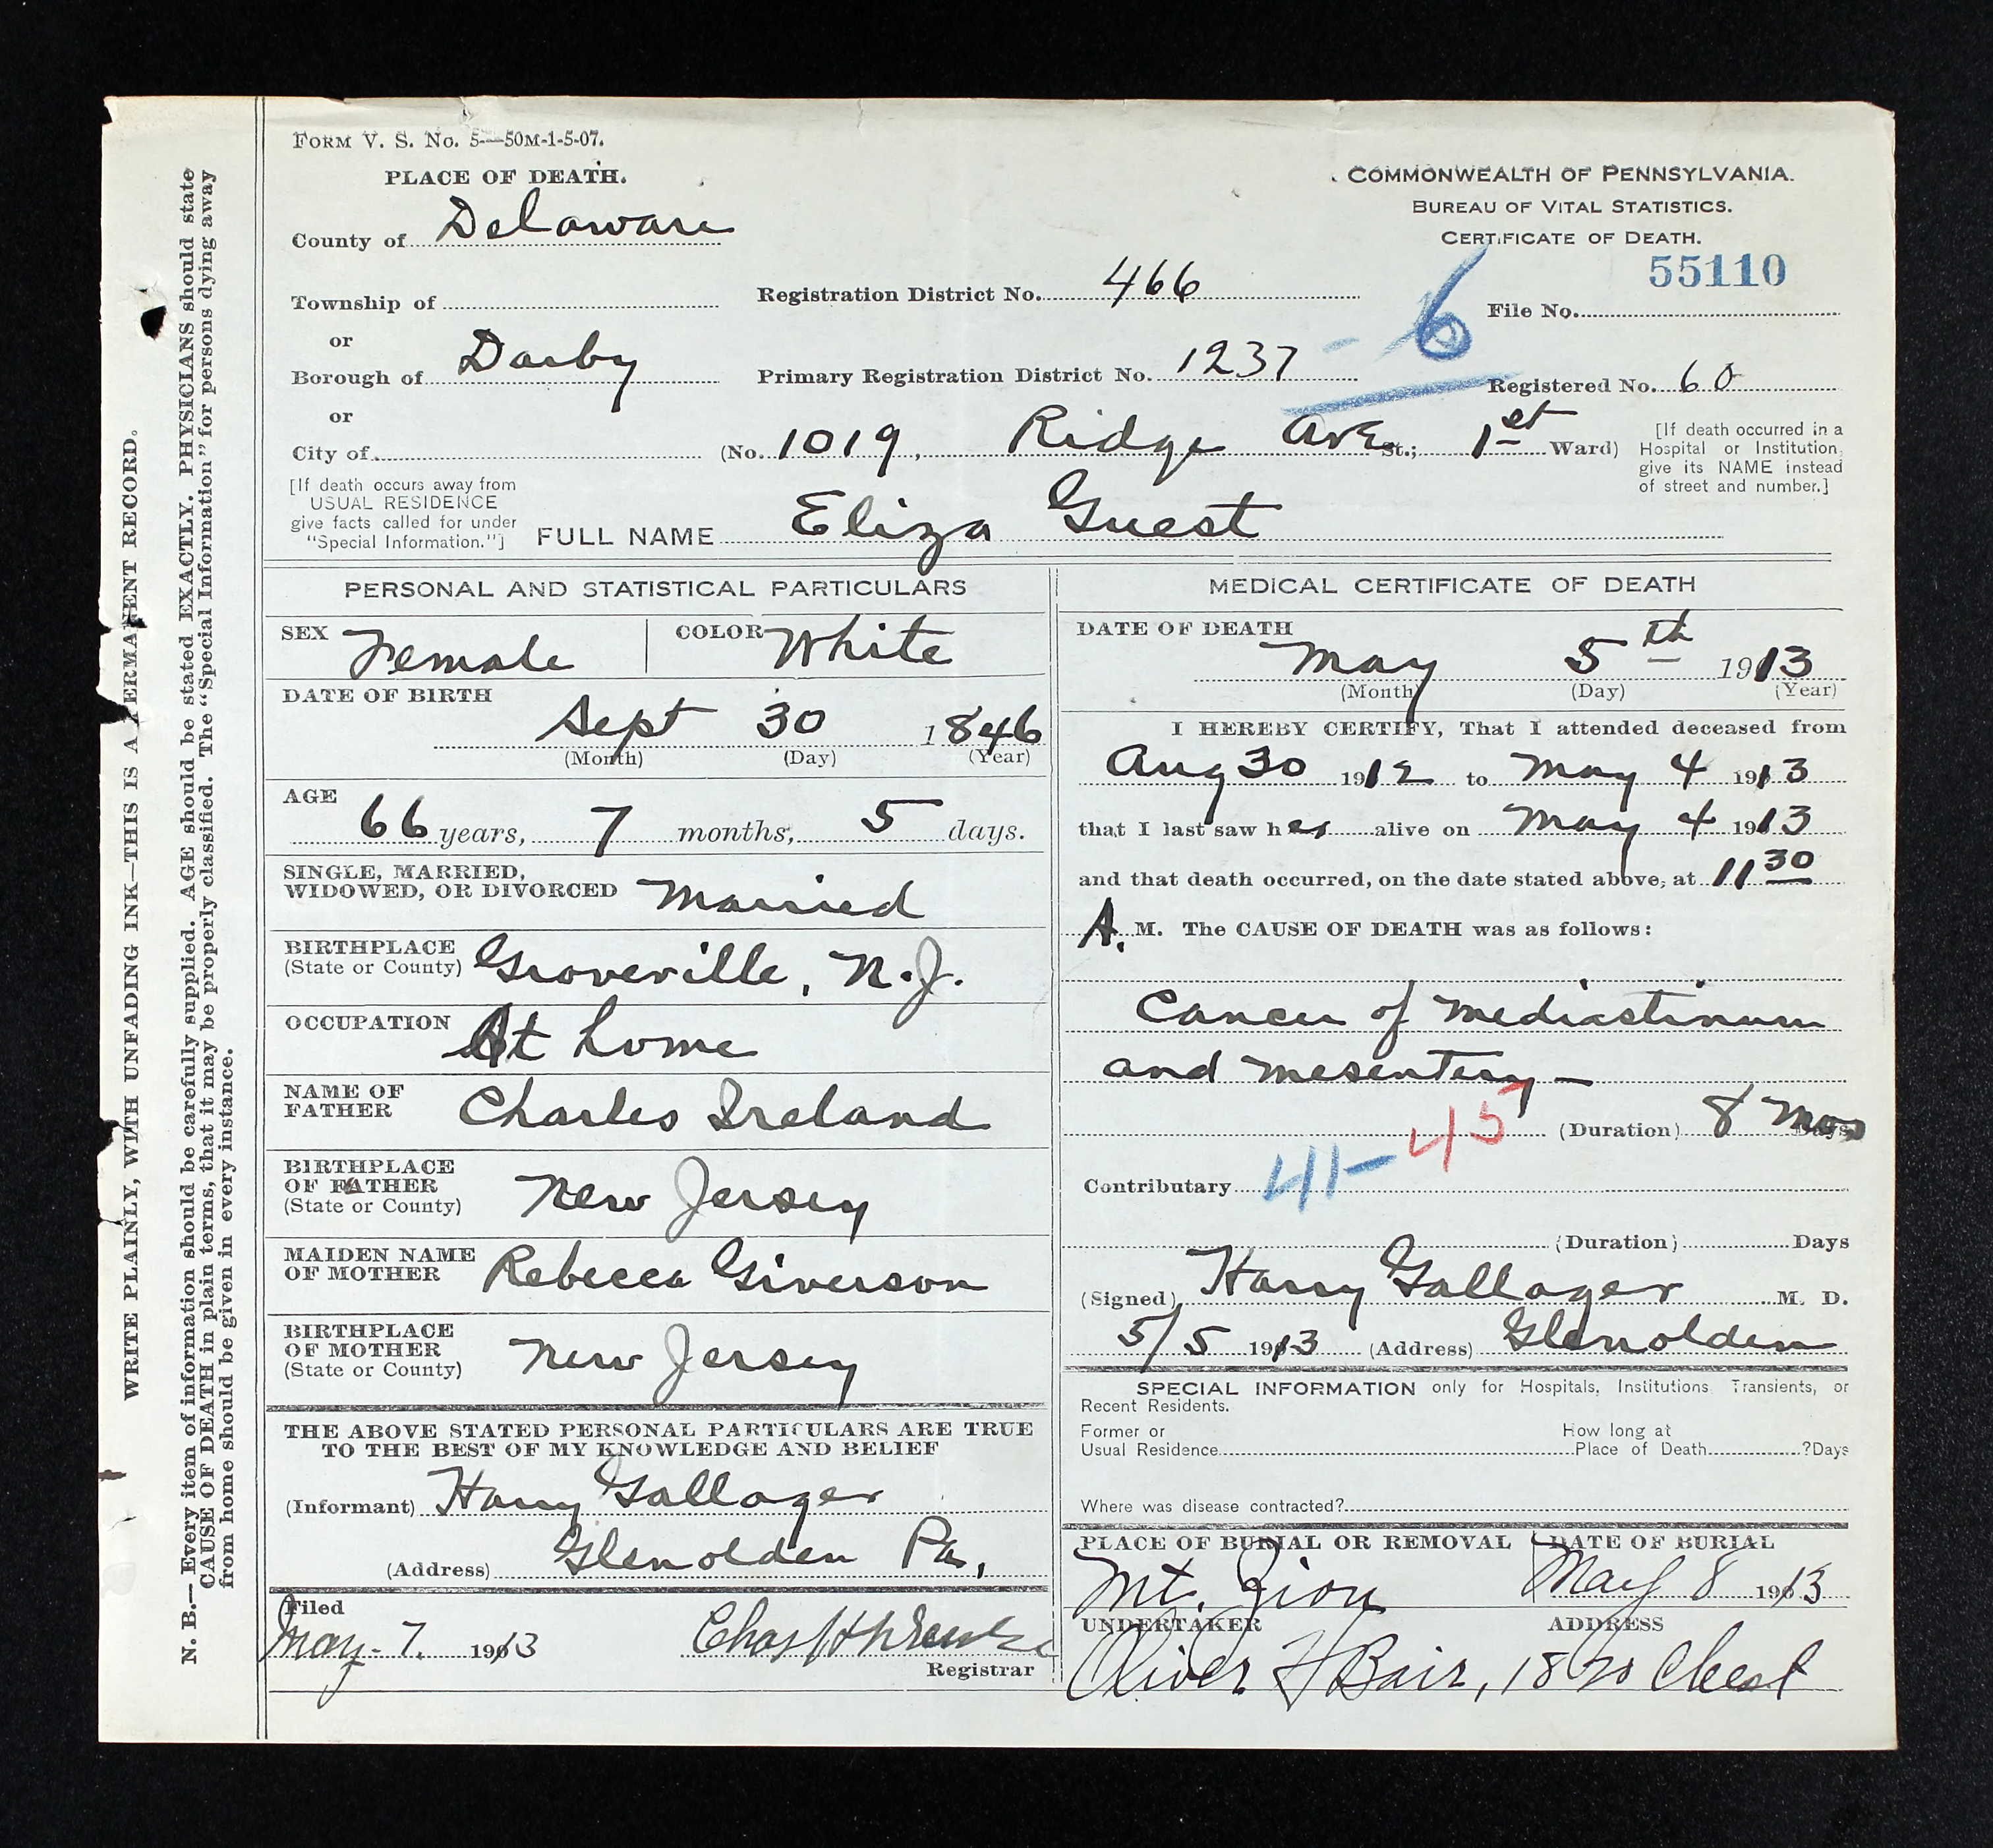 WRITE PLAINLY, WITH UNFADING INK—THIS IS A PERMANENT RECORD.
N. B.—Every item of information should be carefully supplied. AGE should be stated EXACTLY. PHYSICIANS should state
CAUSE OF DEATH in plain terms, that it may be properly classified. The "Special Information" for persons dying away
from home should be given in every instance.
FORM V. S. No. 5—50M-1-5-07.
PLACE OF DEATH.
COMMONWEALTH OF PENNSYLVANIA.
BUREAU OF VITAL STATISTICS.
CERTIFICATE OF DEATH.
County of Delaware
55110
Township of
Registration District No. 466
6
File No.
or
Borough of Darby
Primary Registration District No. 1237 -
Registered No. 60
or
City of (No. 1019, Ridge Ave St.; 1st Ward)
[If death occurred in a
Hospital or Institution,
give its NAME instead
of street and number.]
[If death occurs away from
USUAL RESIDENCE
give facts called for under
"Special Information."]
FULL NAME Eliza Guest
PERSONAL AND STATISTICAL PARTICULARS
SEX Female COLOR White
DATE OF BIRTH
Sept 30 1846
(Month) (Day) (Year)
AGE
66 years, 7 months, 5 days.
SINGLE, MARRIED,
WIDOWED, OR DIVORCED Married
BIRTHPLACE
(State or County) Groveville, N.J.
OCCUPATION At home
NAME OF
FATHER Charles Ireland
BIRTHPLACE
OF FATHER
(State or County) New Jersey
MAIDEN NAME
OF MOTHER Rebecca Giverson
BIRTHPLACE
OF MOTHER
(State or County) New Jersey
THE ABOVE STATED PERSONAL PARTICULARS ARE TRUE
TO THE BEST OF MY KNOWLEDGE AND BELIEF
(Informant) Harry Gallager
(Address) Glenolden Pa,
Filed
May 7. 1913 Chas
Registrar
MEDICAL CERTIFICATE OF DEATH
DATE OF DEATH
May 5th 1913
(Month) (Day) (Year)
I HEREBY CERTIFY, That I attended deceased from
Aug 30 1912 to May 4 1913
that I last saw her alive on May 4 1913
and that death occurred, on the date stated above, at 11 30
A. M. The CAUSE OF DEATH was as follows:
Cancer of Mediastinum
and Mesentery —
45
(Duration) 8 Mos Days
Contributary 41-
(Duration) Days
(Signed) Harry Gallager M. D.
5/5 1913 (Address) Glenolden
SPECIAL INFORMATION only for Hospitals, Institutions, Transients, or
Recent Residents.
Former or
Usual Residence
How long at
Place of Death ?Days
Where was disease contracted?
PLACE OF BURIAL OR REMOVAL DATE OF BURIAL
Mt. Zion May 8 1913
UNDERTAKER ADDRESS
Oliver H Bair, 1820 Chest